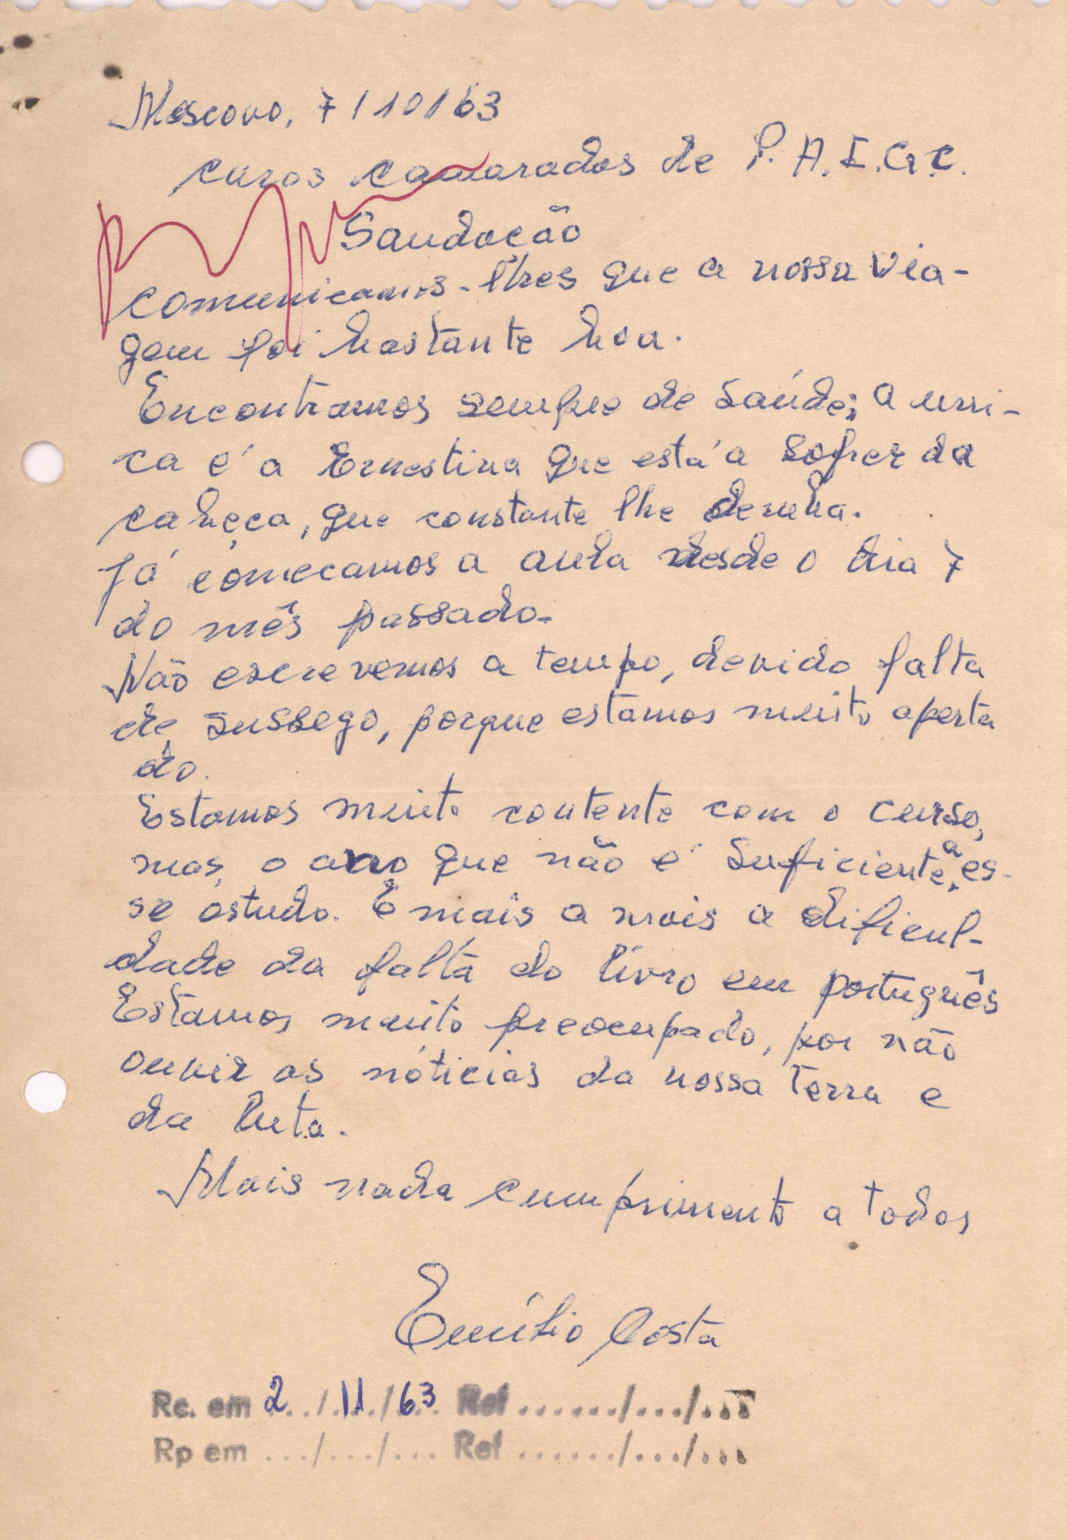 Moscovo, 7/10/63
caros camarados de P.A.I.G.C.
Saudação
comunicamos-lhes que a nossa via-
gem foi bastante boa.
Encontramos sempre de saúde; a uni-
ca é a Ernestina que está a sofrer da
cabeça, que constante lhe
Já começamos a aula desde o dia 7
do mês passado.
Não escrevemos a tempo, devido falta
de sussego, porque estamos muito aperta
do.
Estamos muito contente com o curso,
mas, o ano que não é suficiente, a es-
se estudo. E mais a mais a dificul-
dade da falta do livro em português
Estamos muito preocupado, por não
ouvir as nóticias da nossa terra e
da luta.
Mais nada cumprimento a todos
Emílio Costa
Rc. em 2../11./63.. Ref ....../.../...
Rp em .../.../... Ref ....../.../...